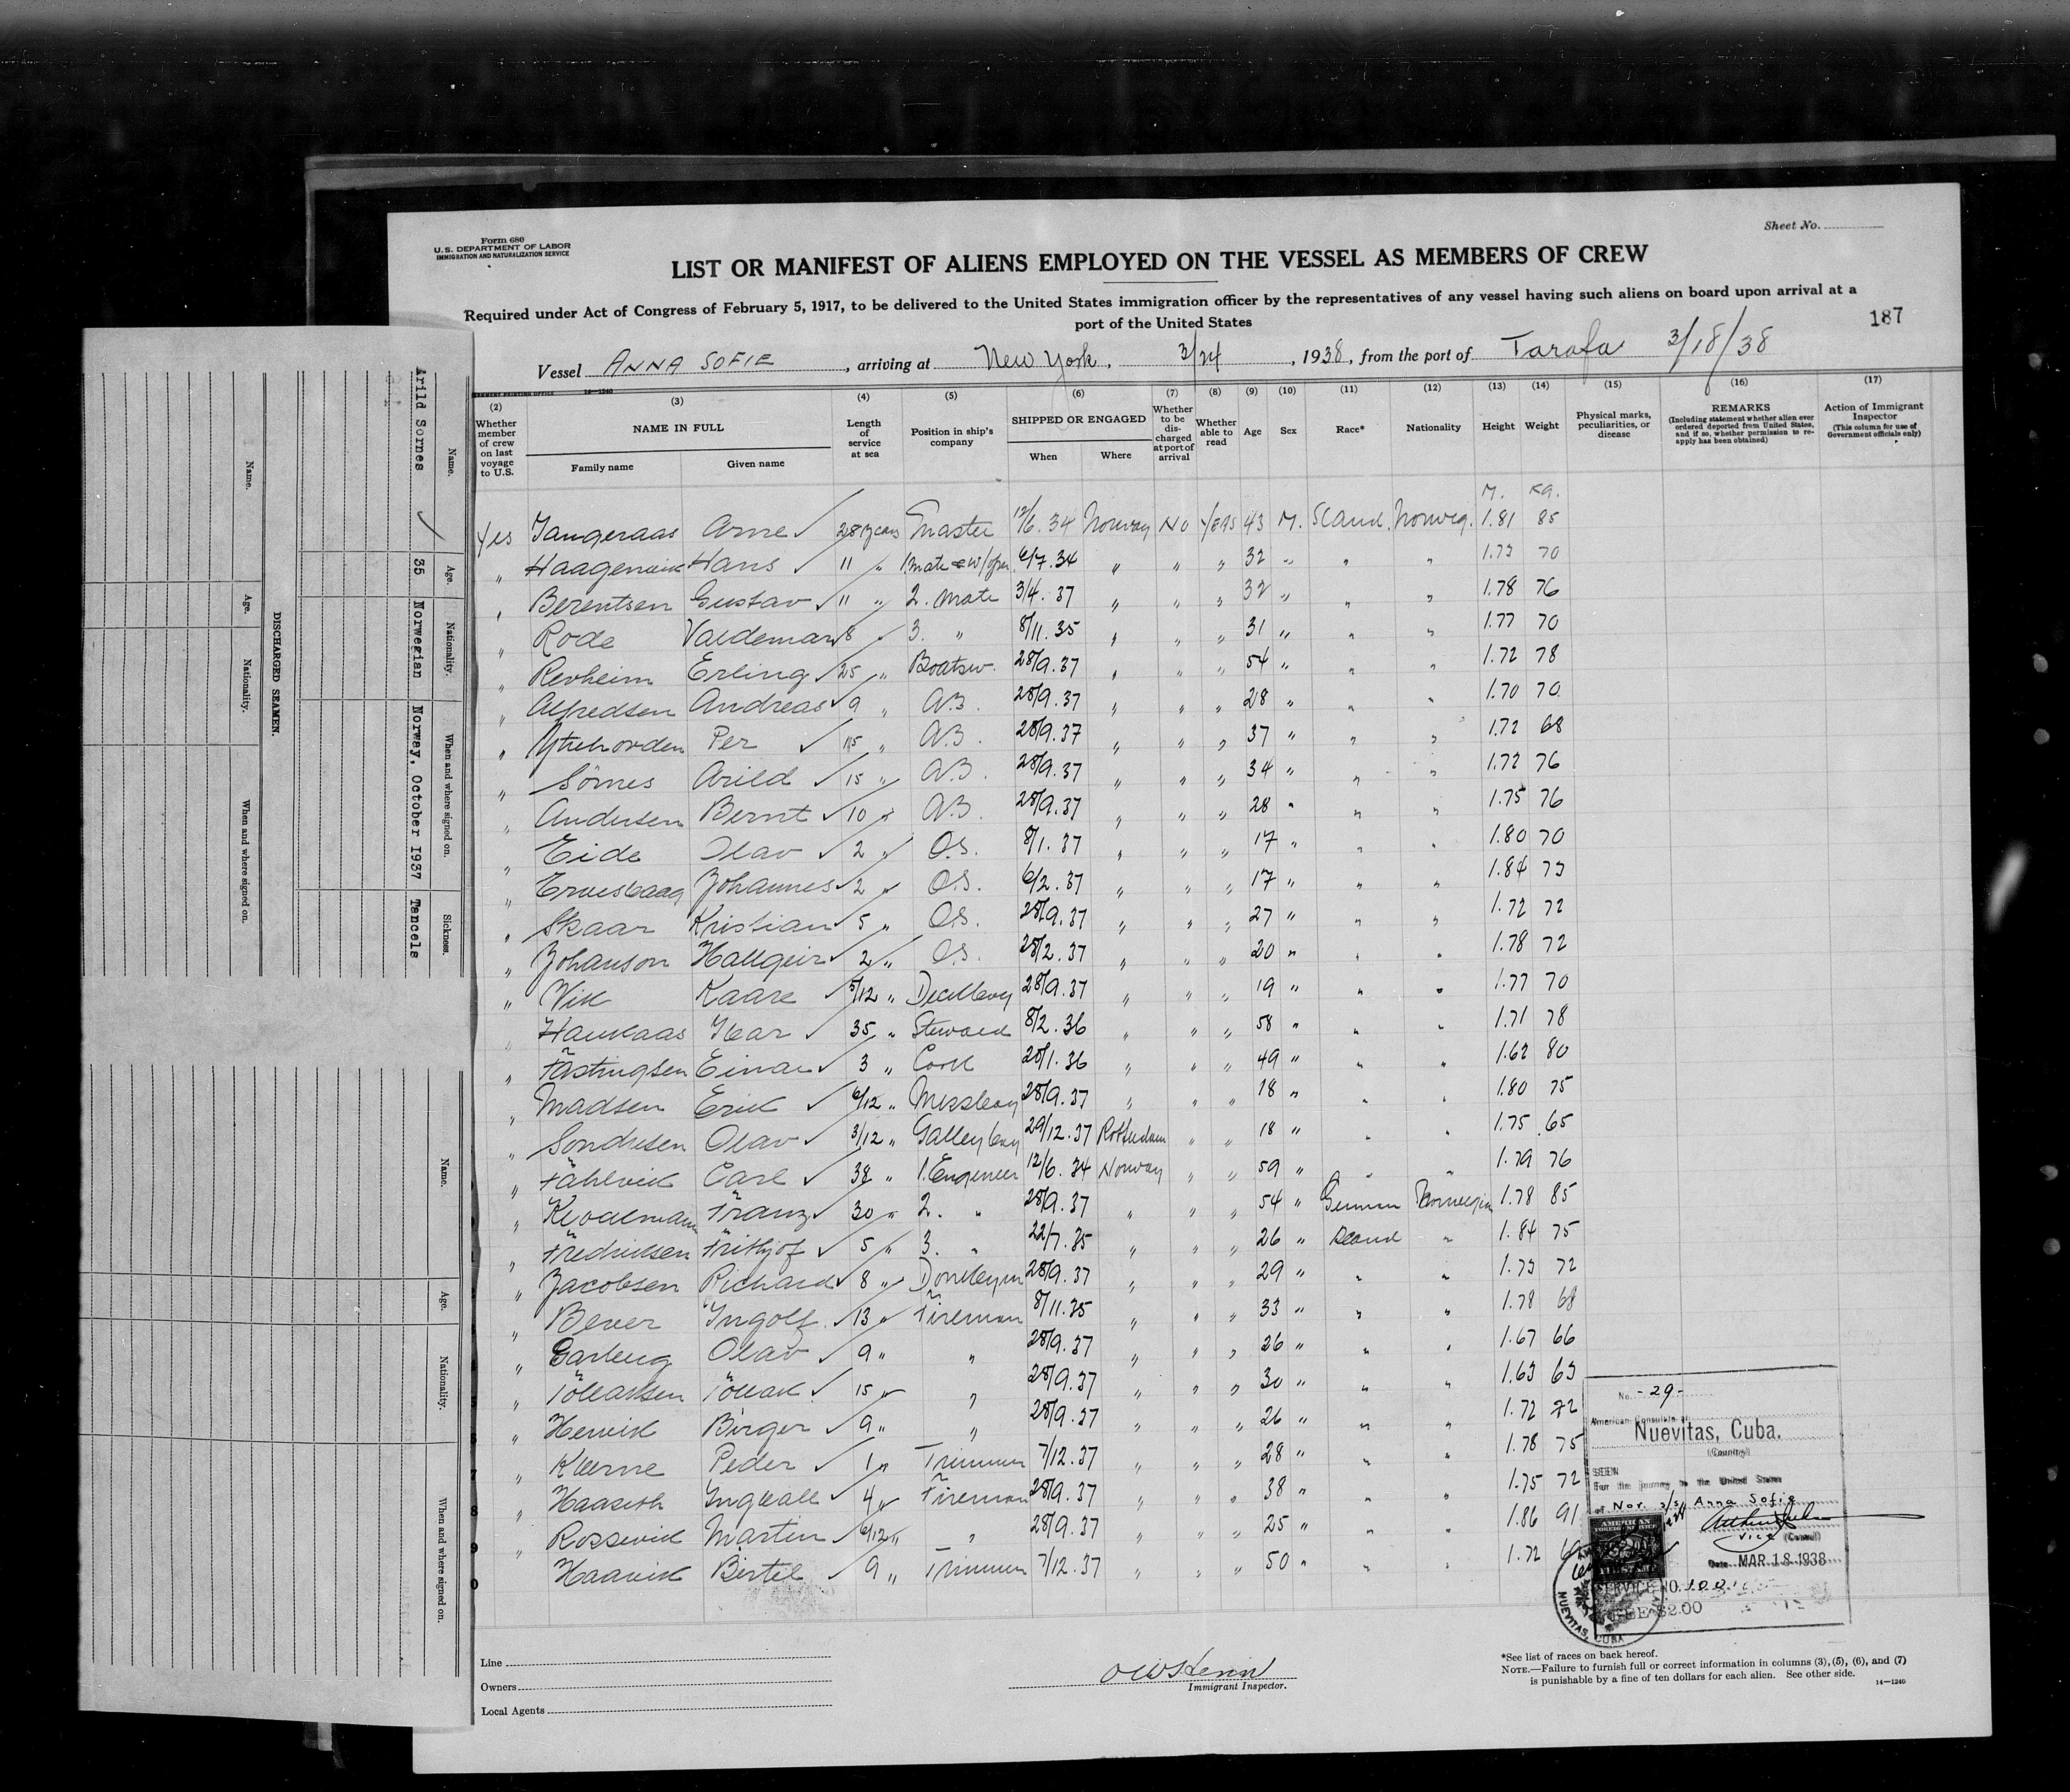 Form 680
U.S. DEPARTMENT OF LABOR
IMMIGRATION AND NATURALIZATION SERVICE
Sheet No.
LIST OR MANIFEST OF ALIENS EMPLOYED ON THE VESSEL AS MEMBERS OF CREW
Required under Act of Congress of February 5, 1917, to be delivered to the United States immigration officer by the representatives of any vessel having such aliens on board upon arrival at a
port of the United States
187
Vessel ANNA SOFIE, arriving at New York, 3/24, 1938, from the port of Tarafa 3/18/38
14—1240
(2) (3) (4) (5) (6) (7) (8) (9) (10) (11) (12) (13) (14) (15) (16) (17)
Whether member of crew on last voyage to U.S.
NAME IN FULL
Family name Given name
Length of service at sea
Position in ship's company
SHIPPED OR ENGAGED
When Where
Whether to be discharged at port of arrival
Whether able to read
Age Sex Race* Nationality Height Weight
Physical marks, peculiarities, or disease
REMARKS
(Including statement whether alien ever ordered deported from United States, and if so, whether permission to reapply has been obtained)
Action of Immigrant Inspector
(This column for use of Government officials only)
M. Kg.
Yes Tangeraas Arne 28 years Master 12/6.34 Norway No Yes 43 M. Scand. Norweg. 1.81 85
" Haagenvik Hans 11 " 1 mate 6/7.34 " " " 32 " " " 1.73 70
" Berentsen Gustav 11 " 2. Mate 3/4.37 " " " 32 " " " 1.78 76
" Rode Valdemar 8 " 3. " 8/11.35 " " " 31 " " " 1.77 70
" Revheim Erling 25 " Boatsw. 28/9.37 " " " 54 " " " 1.72 78
" Alfredsen Andreas 9 " A.B. 28/9.37 " " " 28 " " " 1.70 70
" Ytrehorden Per 15 " A.B 28/9.37 " " " 37 " " " 1.72 68
" Sörnes Arild 15 " A.B. 28/9.37 " " " 34 " " " 1.72 76
" Andersen Bernt 10 " A.B. 28/9.37 " " " 28 " " " 1.75 76
" Eide Olav 2 " O.S. 8/1.37 " " " 17 " " " 1.80 70
" Johannes 2 " O.S. 6/2.37 " " " 17 " " " 1.84 73
" Skaar Kristian 5 " O.S. 28/9.37 " " " 27 " " " 1.72 72
" Johanson Hallgeir 2 " O.S. 28/2.37 " " " 20 " " " 1.78 72
" Vik Kaare 5/12 " Deckboy 28/9.37 " " " 19 " " " 1.77 70
" Haukaas Ivar 35 " Steward 8/2.36 " " " 58 " " " 1.71 78
" Fastingsen Einar 3 " Cook 20/1.36 " " " 49 " " " 1.62 80
" Madsen Erik 6/12 " Messboy 28/9.37 " " " 18 " " " 1.80 75
" Sondresen Olav 3/12 " Galleyboy 29/12.37 Rotterdam " " 18 " " " 1.75 65
" Fahlvik Carl 38 " 1. Engineer 12/6.34 Norway " " 59 " " " 1.79 76
" Franz 30 " 2. " 28/9.37 " " " 54 " German Norwegian 1.78 85
" Fredriksen Frithjof 5 " 3. " 22/7.35 " " " 26 " Scand " 1.84 75
" Jacobsen Richard 8 " Donkeym 28/9.37 " " " 29 " " " 1.73 72
" Bever Ingolf 13 " Fireman 8/11.35 " " " 33 " " " 1.78 68
" Garberg Olav 9 " " 28/9.37 " " " 26 " " " 1.67 66
" Tollaksen Tollak 15 " " 28/9.37 " " " 30 " " " 1.63 63
" Hervik Birger 9 " " 28/9.37 " " " 26 " " " 1.72 72
" Peder 1 " Trimmer 7/12.37 " " " 28 " " " 1.78 75
" Haaseth Ingvald 4 " Fireman 28/9.37 " " " 38 " " " 1.75 72
" Rossevik Martin 6/12 " " 28/9.37 " " " 25 " " " 1.86 91
Haavik Bertel 9 " Trimmer 7/12.37 " " " 50 " " " 1.72
No. -29-
American Consulate at
Nuevitas, Cuba.
(Country)
SEEN
For the journey to the United States
of Nor. s/s Anna Sofie
Vice (Consul)
Date MAR 18 1938
AMERICAN
FOREIGN SERVICE
SERVICE NO.
FEE $2.00
NUEVITAS, CUBA
Line
Owners
Local Agents
Immigrant Inspector.
*See list of races on back hereof.
NOTE.—Failure to furnish full or correct information in columns (3), (5), (6), and (7)
is punishable by a fine of ten dollars for each alien. See other side.
14—1240
Name. Age. Nationality. When and where signed on. Sickness.
Arild Sornes 35 Norwegian Norway, October 1937 Tancels
DISCHARGED SEAMEN.
Name. Age. Nationality. When and where signed on.
Name. Age. Nationality. When and where signed on.